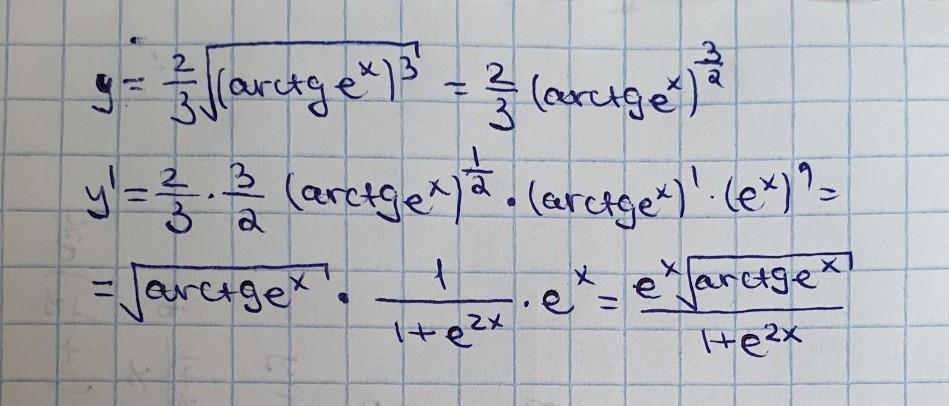 y = 2/3 √(arctg e^x)^3 = 2/3 (arctg e^x)^(3/2)
y' = 2/3 · 3/2 (arctg e^x)^(1/2) · (arctg e^x)' · (e^x)' =
= √(arctg e^x) · 1/(1+e^(2x)) · e^x = (e^x √(arctg e^x))/(1+e^(2x))